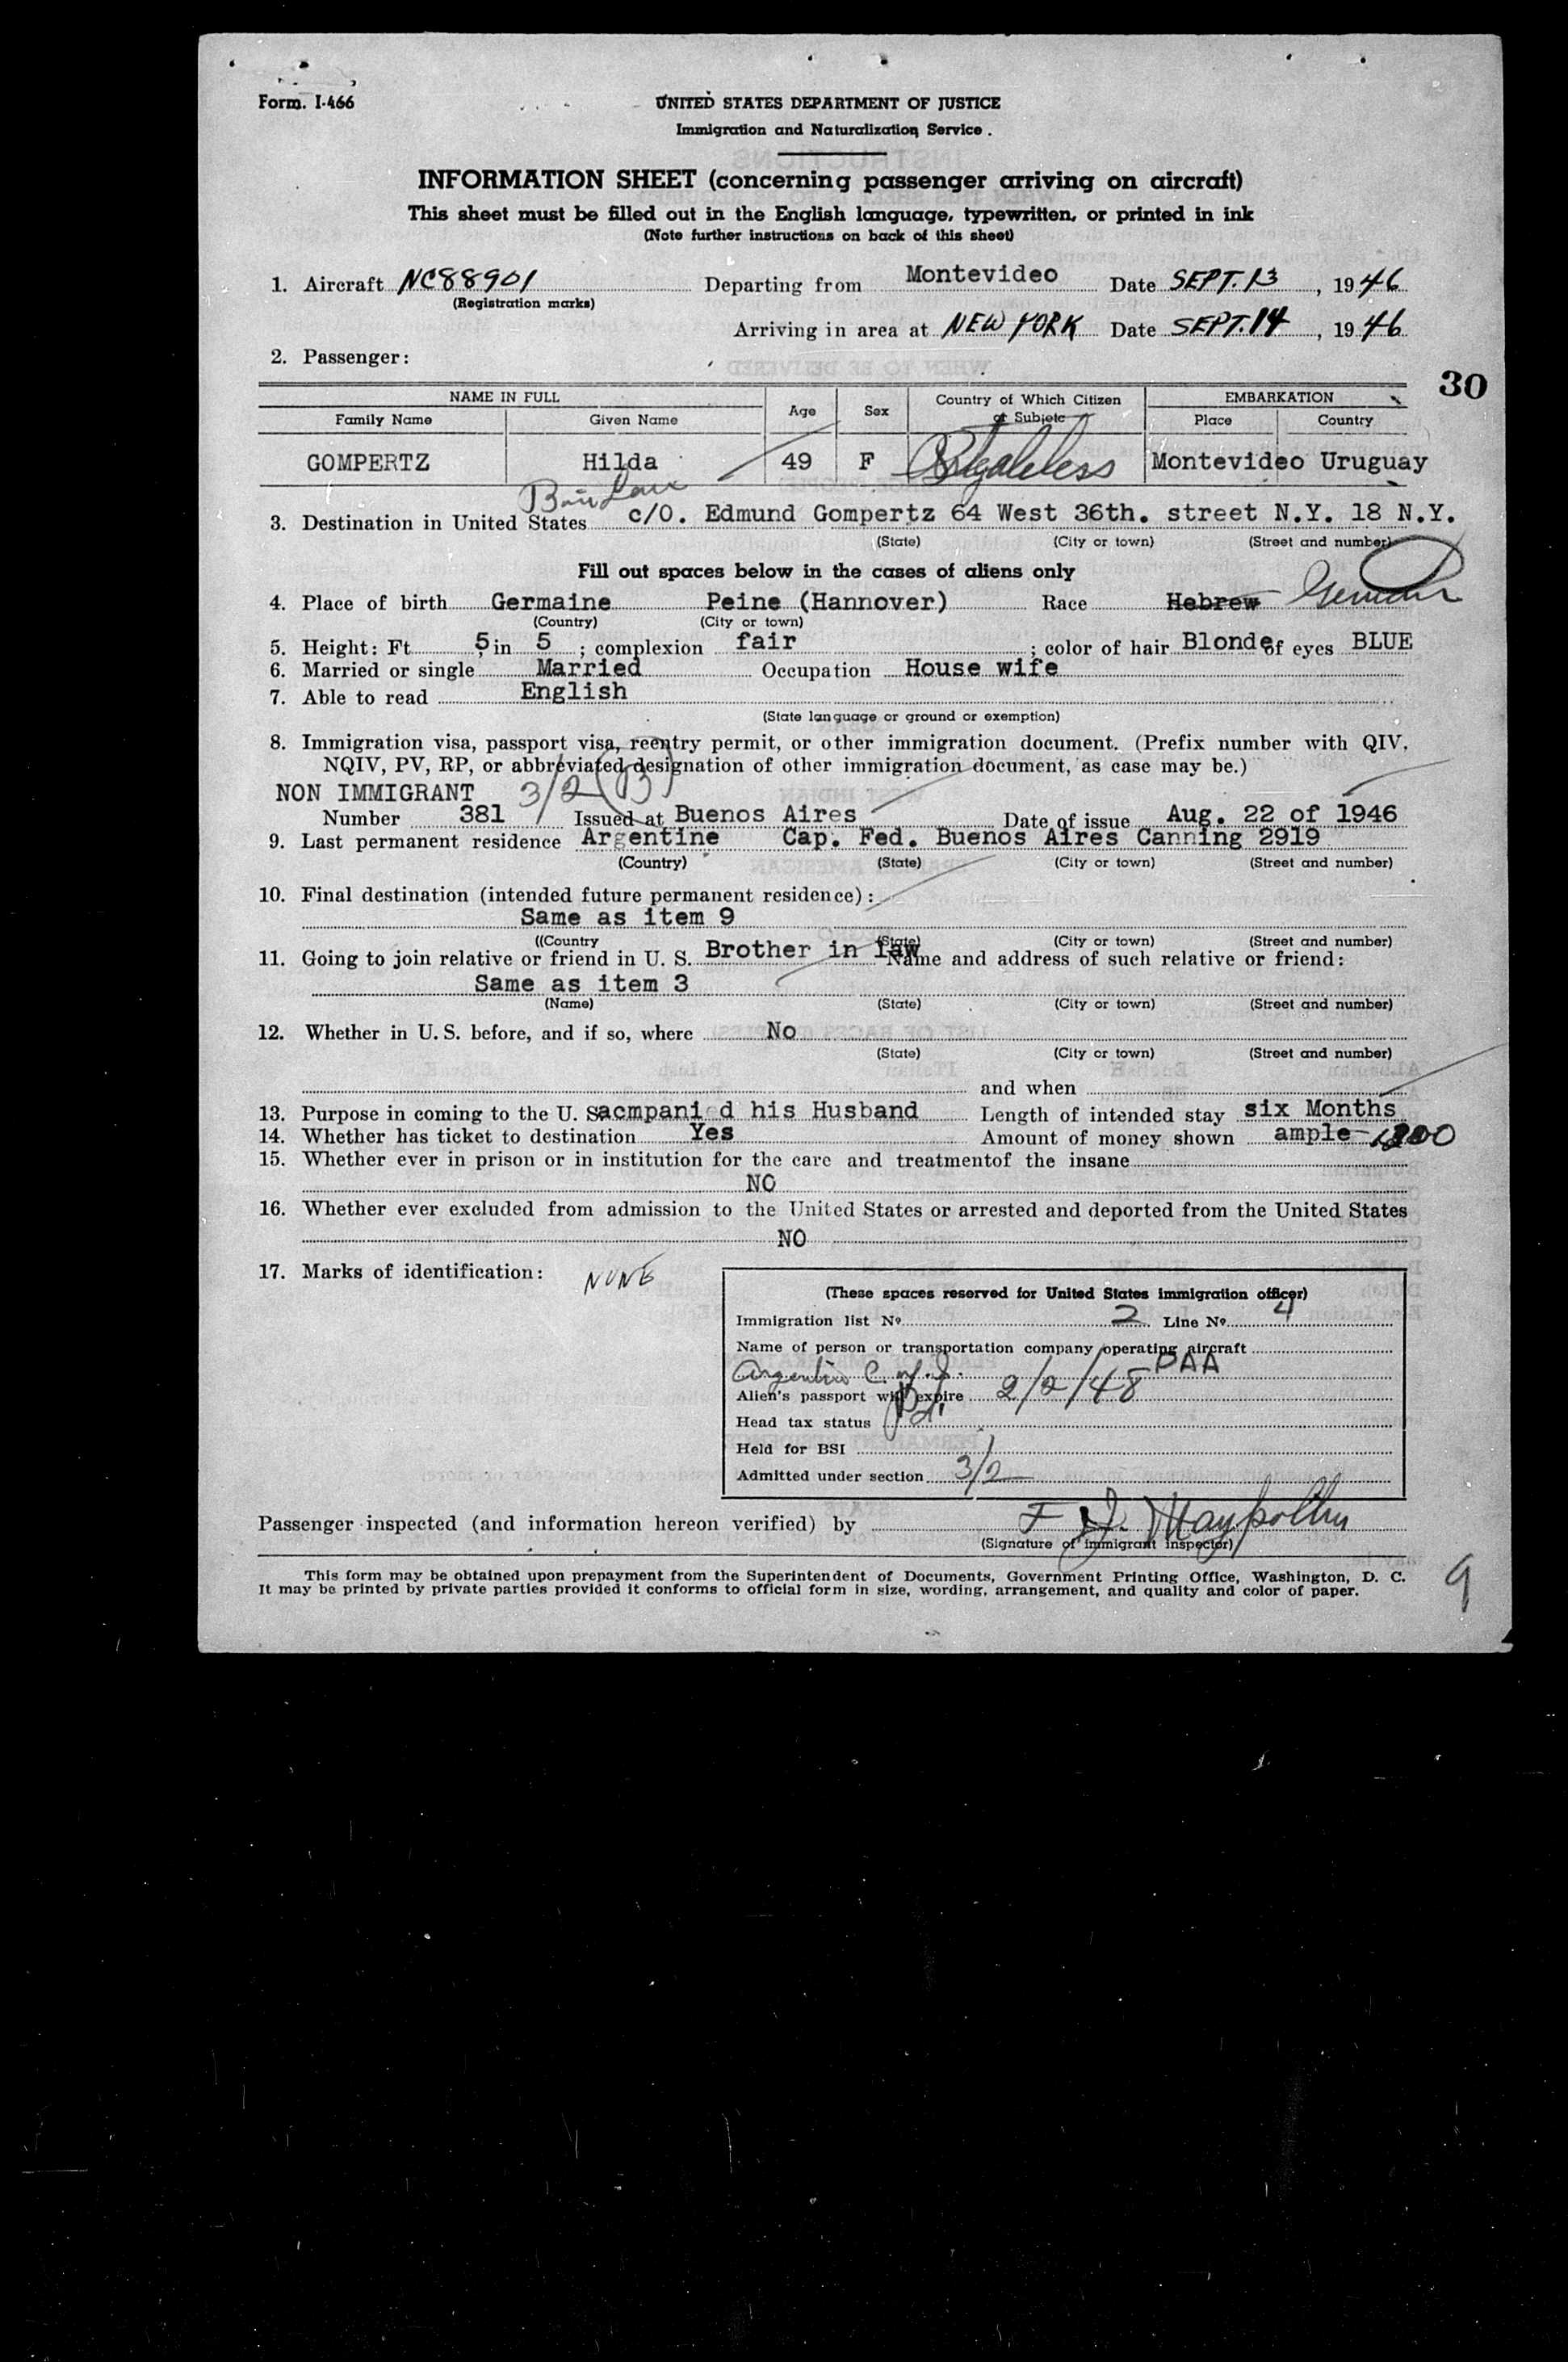 Form. I-466
UNITED STATES DEPARTMENT OF JUSTICE
Immigration and Naturalization Service .
INFORMATION SHEET (concerning passenger arriving on aircraft)
This sheet must be filled out in the English language, typewritten, or printed in ink
(Note further instructions on back of this sheet)
1. Aircraft NC88901 Departing from Montevideo Date SEPT. 13, 1946
(Registration marks)
Arriving in area at NEW YORK Date SEPT. 14, 1946
2. Passenger:
30
NAME IN FULL Age Sex Country of Which Citizen or Subject EMBARKATION
Family Name Given Name Place Country
GOMPERTZ Hilda 49 F Stateless Montevideo Uruguay
3. Destination in United States c/O. Edmund Gompertz 64 West 36th. street N.Y. 18 N.Y.
(State) (City or town) (Street and number)
Fill out spaces below in the cases of aliens only
4. Place of birth Germaine Peine (Hannover) Race Hebrew German
(Country) (City or town)
5. Height: Ft 5 in 5 ; complexion fair ; color of hair Blonde of eyes BLUE
6. Married or single Married Occupation House wife
7. Able to read English
(State language or ground or exemption)
8. Immigration visa, passport visa, reentry permit, or other immigration document. (Prefix number with QIV,
NQIV, PV, RP, or abbreviated designation of other immigration document, as case may be.)
NON IMMIGRANT 3/2 (B)
Number 381 Issued at Buenos Aires Date of issue Aug. 22 of 1946
9. Last permanent residence Argentine Cap. Fed. Buenos Aires Canning 2919
(Country) (State) (City or town) (Street and number)
10. Final destination (intended future permanent residence):
Same as item 9
((Country (State) (City or town) (Street and number)
11. Going to join relative or friend in U. S. Brother in law Name and address of such relative or friend:
Same as item 3
(Name) (State) (City or town) (Street and number)
12. Whether in U. S. before, and if so, where No
(State) (City or town) (Street and number)
and when
13. Purpose in coming to the U. S acmpani d his Husband Length of intended stay six Months
14. Whether has ticket to destination Yes Amount of money shown ample
15. Whether ever in prison or in institution for the care and treatmentof the insane
NO
16. Whether ever excluded from admission to the United States or arrested and deported from the United States
NO
17. Marks of identification: NONE
(These spaces reserved for United States immigration officer)
Immigration list No 2 Line No 4
Name of person or transportation company operating aircraft
PAA
Argentine C. of I.
Alien's passport will expire 2/2/48
Head tax status
Held for BSI
Admitted under section 3/2
Passenger inspected (and information hereon verified) by F J.
(Signature of immigrant inspector)
This form may be obtained upon prepayment from the Superintendent of Documents, Government Printing Office, Washington, D. C.
It may be printed by private parties provided it conforms to official form in size, wording, arrangement, and quality and color of paper.
9